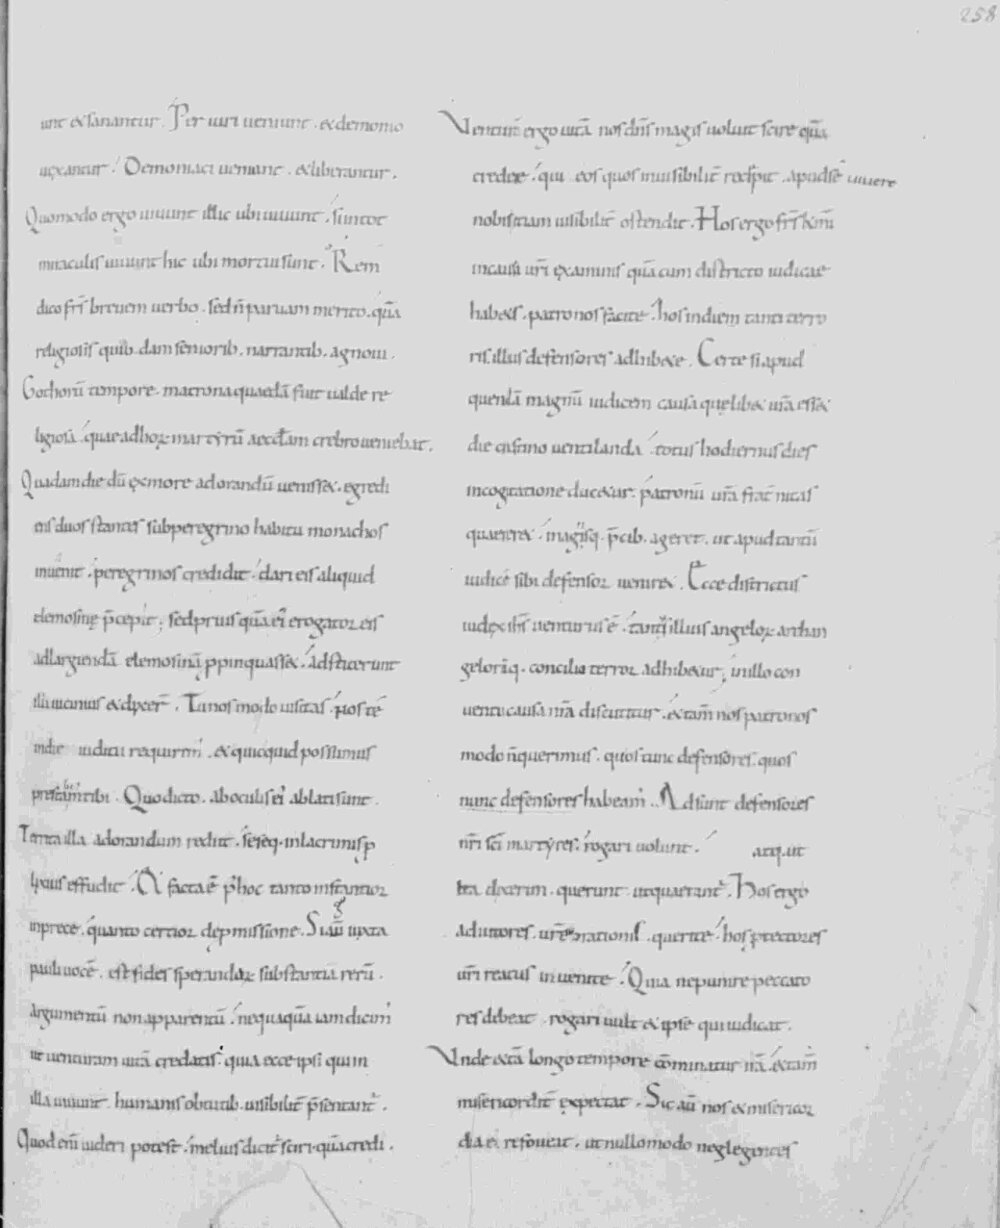 258
unt & sanantur. Periuri ueniunt. & demonio
uexantur. Demoniaci ueniunt. & liberantur.
Quomodo ergo uiuunt illic ubi uiuunt. si in tot
miraculis uiuunt hic ubi mortui sunt. Rem
dico fr̄s breuem uerbo. sed n̄ paruam merito. quā
religiosis quib. dam seniorib. narrantib. agnoui.
Gothorū tempore. matrona quaedā fuit ualde re
ligiosa. quae ad hoꝝ martyrū aeccl̄am crebro ueniebat.
Quadam die dū ex more adorandū ueniss&. egredi
ens duos stantes sub peregrino habitu monachos
inuenit. peregrinos credidit. dari eis aliquid
elemosinę p̄cepit; sed prius quā ei' erogator eis
ad largiendā elemosinā ppinquass&. adsteterunt
illi uicinius & dixeř. Tu nos modo uisitas. nos te
in die iudicii requirem'. & quicquid possumus
prestabim' tibi. Quo dicto. ab oculis ei' ablati sunt.
Territa illa adorandum rediit. seseq. in lacrimis p
lixius effudit. A facta ē p' hoc tanto instantior
in prece. quanto certior de pmissione. Si aū iuxta
pauli uocē. est fides sperandaꝝ substantia rerū.
argumentū non apparentū. nequaquā iam dicim'
ut uenturam uitā credatis. quia ecce ipsi qui in
illa uiuunt. humanis obtutib. uisibilit̄ p̄sentant'.
Quod enī uideri potest. melius dicit' sciri. quā credi.
Venturā ergo uitā nos dn̄s magis uoluit scire quā
credere. qui eos quos inuisibilit̄ recipit. apud se uiuere
nobis etiam uisibilit̄ ostendit. Hos ergo fr̄s km̄i
in causa ur̄i examinis quā cum districto iudice
hab&is. patronos facite. hos in diem tanti terro
ris illius defensores adhib&e. Certe si apud
quendā magnū iudicem causa quęlib& ur̄a ess&
die crastino uentilanda. totus hodiernus dies
in cogitatione duc&ur. patronū ur̄a frat̄nitas
quaerer&. magisq. p̄cib. ager&. ut apud tantū
iudicē sibi defensor uenir&. Ecce districtus
iudex ih̄s uenturus ē. tantus illius angeloꝝ archan
gelorūq. concilii terror adhib&ur; in illo con
uentu causa nr̄a discutitur. & tam̄ nos patronos
modo n̄ querimus. quos tunc defensores. quos
nunc defensores habeam'. Adsunt defensores
nr̄i sc̄i martyres. rogari uolunt. atq. ut
ita dixerim. querunt ut quaerant'. Hos ergo
adiutores. ur̄e orationis. querite. hos ptectores
ur̄i reatus inuenite. Quia ne punire peccato
res debeat. rogari uult & ipse qui iudicat.
Vnde & tā longo tempore cōminatur irā. & tam̄
misericordit̄ expectat. Sic aū nos & misericor
dia ei' refoueat. ut nullo modo neglegentes